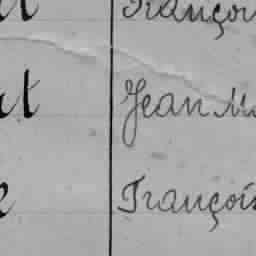 Françoi
rt Jean M
e François